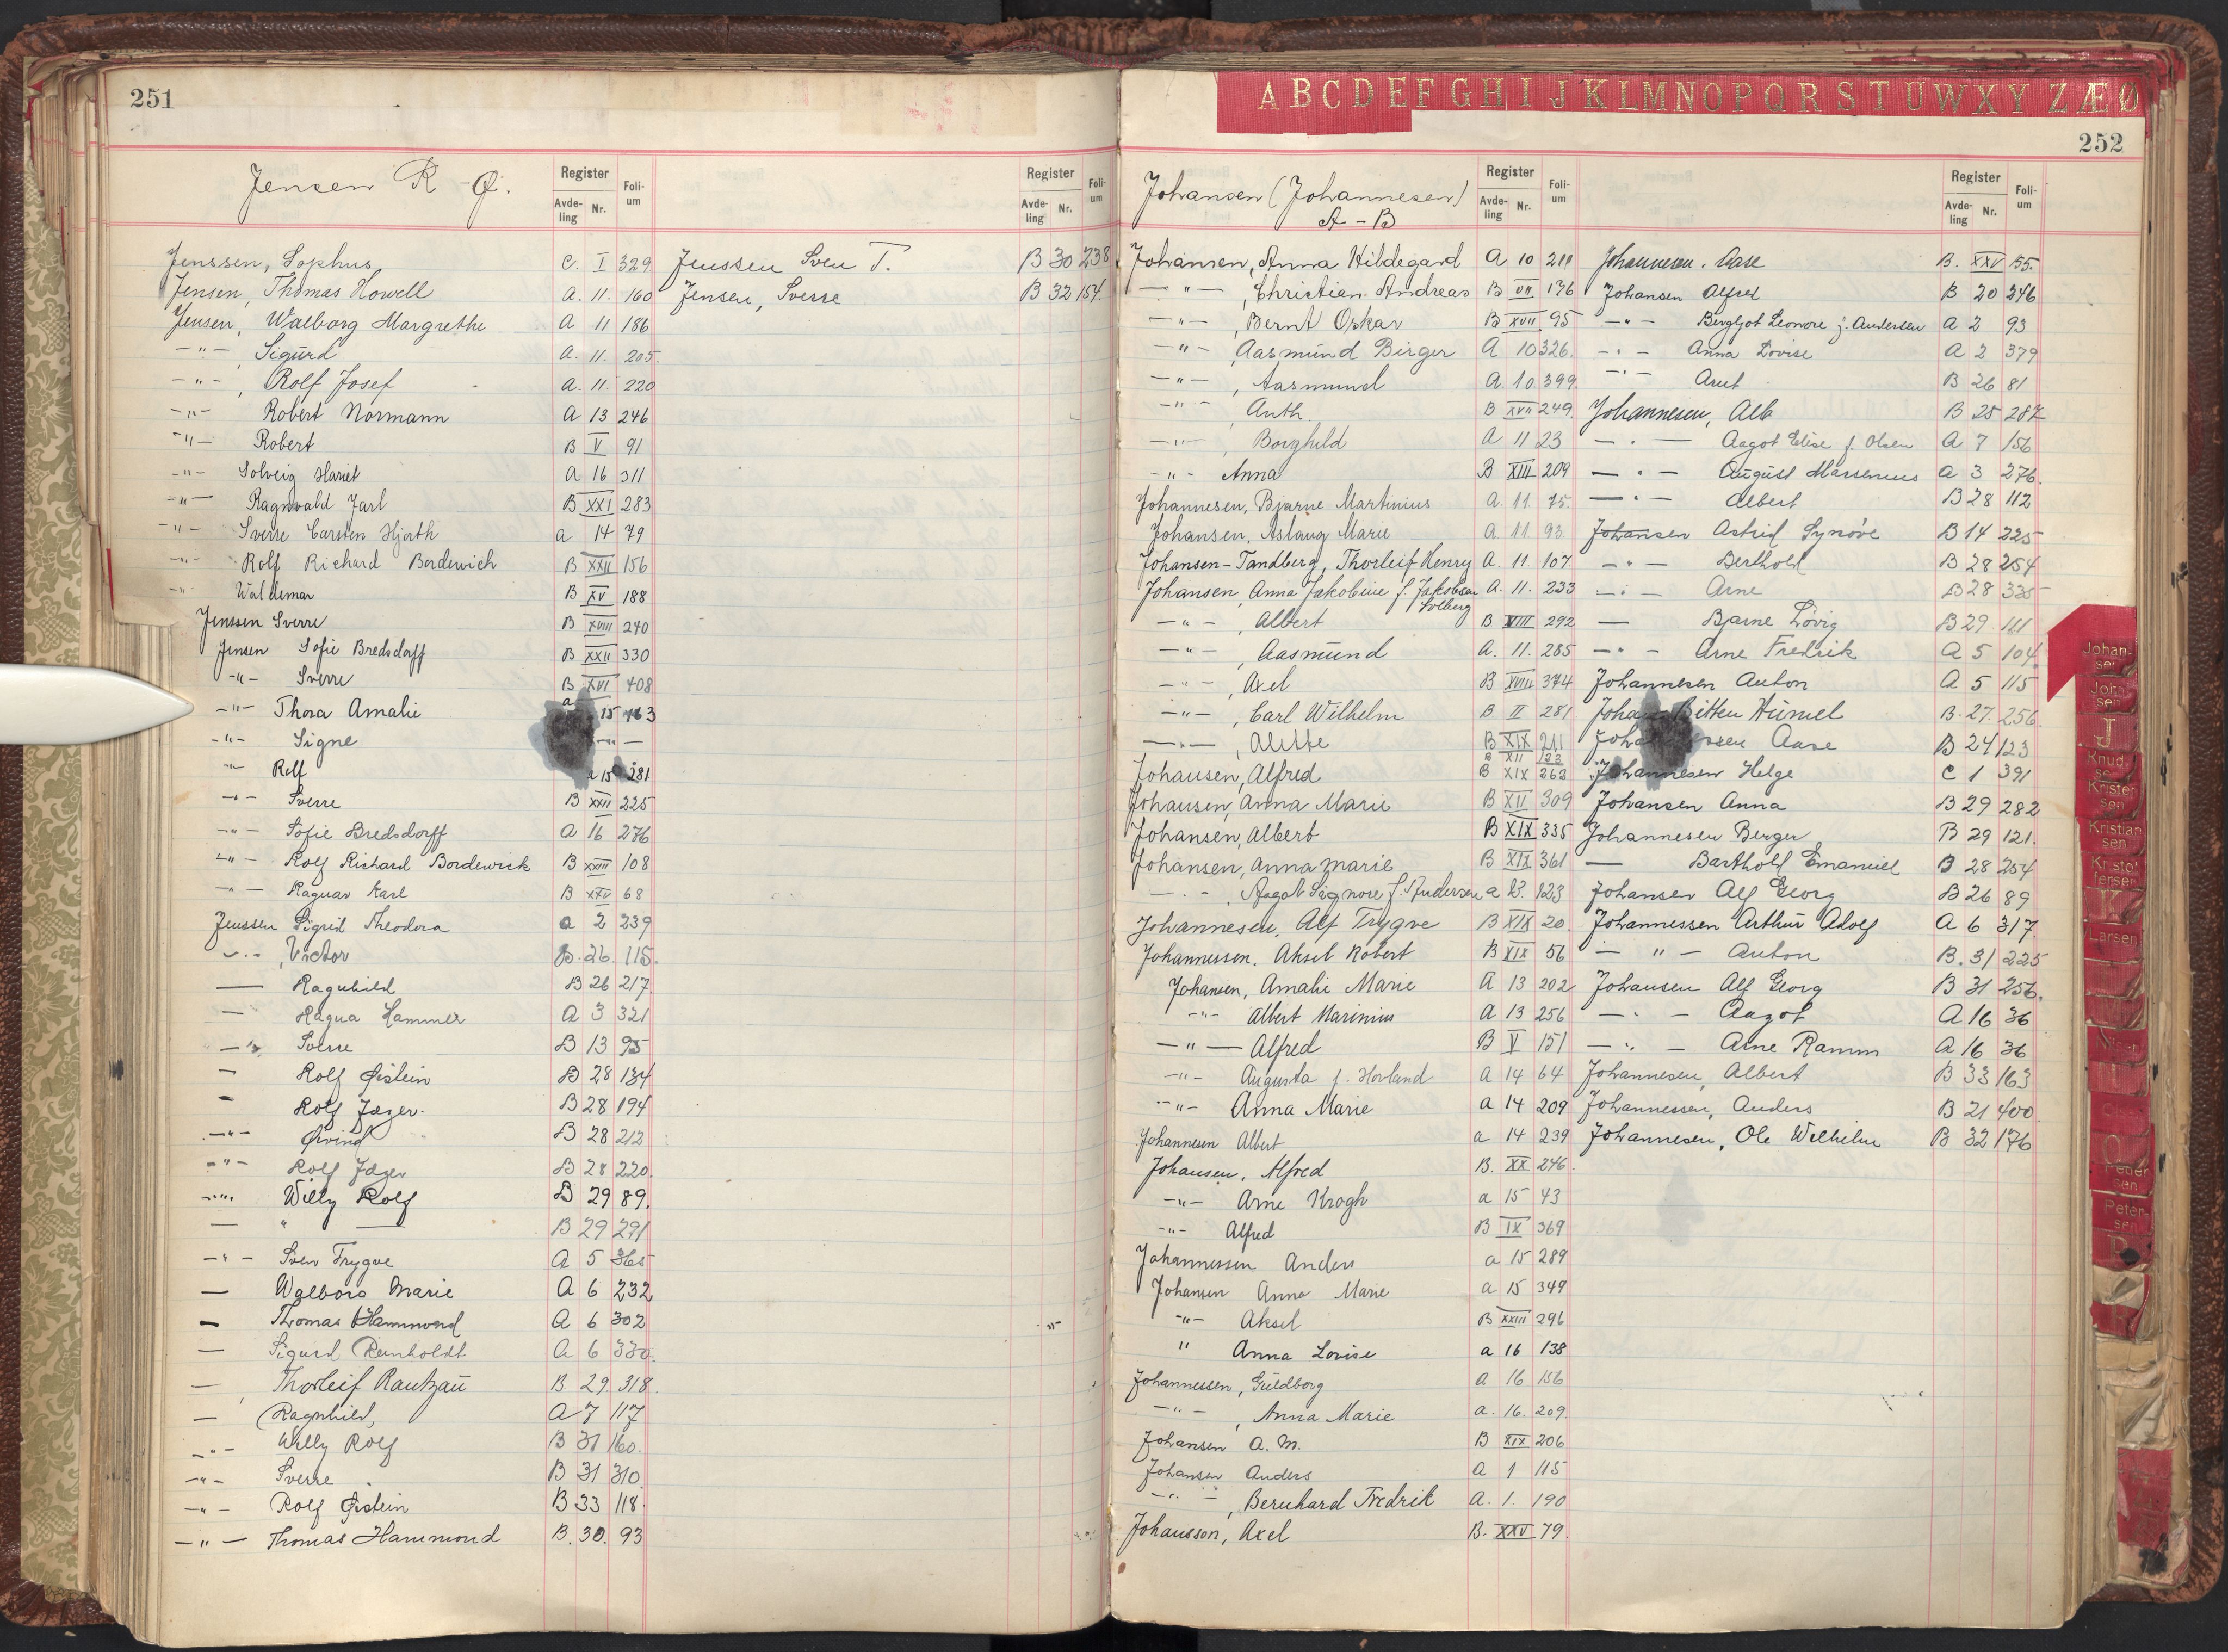 251
Jensen R-Ø.
Register
Avde-ling Nr.
Foli-um
Jenssen, Sophus C. I 329
Jensen, Thomas Howell A. 11. 160
Jensen, Walborg Margrethe A 11 186
-"- Sigurd A. 11. 205.
-"- , Rolf Josef A. 11. 220
-"- Robert Normann A 13 246
-"- Robert B V 91
-"- Solveig Hariet A 16 311
-"- Ragnvald Jarl B XXI 283
-"- Sverre Carsten Hjorth a 14 79
-"- Rolf Richard Borderwich B XXII 156
-"- Waldemar B XV 188
Jenssen Sverre B XVIII 240
Jensen Sofie Bredsdorff B XXII 330
-"- Sverre B XVI 408
-"- Thora Amalie a 15 163
-"- Signe -"-
-"- Rolf 15 281
-"- Sverre B XXII 225
-"- Sofie Bredsdorff A 16 276
-"- Rolf Richard Borderwick B XXIII 108
-"- Ragnar Karl B XXV 68
Jenssen Sigrid Theodora a 2 239
-"- , Victor B. 26. 115.
— Ragnhild B 26 217.
— Ragna Hammer A 3 321
-"- Sverre B 13 95
— Rolf Øistein B 28 134
— Rolf Jæger. B 28 194
-"- Øivind B 28 212
-"- Rolf Jæger B 28 220.
-"- Willy Rolf B 29 89.
— " — B 29 291
-"- Sven Trygve A 5 365
— Walborg Marie A 6 232
— Thomas Hammond A 6 302
— Sigurd Reinholdt A 6 330.
— Thorleif Rantzau B 29. 318.
— Ragnhild, A 7 117
-"- Willy Rolf B 31 160.
-"- Sverre B 31 310
-"- Rolf Øistein B 33 118.
-"- Thomas Hammond B. 30. 93
Register
Avde-ling Nr.
Foli-um
Jenssen Sven T. B 30 238
Jensen, Sverre B 32 154.
-"-
A B C D E F G H I J K L M N O P Q R S T U W X Y Z Æ Ø
252
Johansen (Johannesen)
A - B
Register
Avde-ling Nr.
Foli-um
Johansen, Anna Hildegard A 10 211
-"- , Christian Andreas B VII 136
-"- , Bernt Oskar B XVII 95
-"- , Aasmund Birger A 10 326.
-"- , Aasmund A. 10. 399.
-"- , Anth. B XVII 249.
-"- , Borghild A 11 23
-"- Anna B XIII 209
Johannesen, Bjarne Martinius A. 11. 75.
Johansen, Aslaug Marie A 11 93
Johansen-Tandberg, Thorleif Henry A. 11. 107.
Johansen, Anna Jakobine f. Jakobsen Solberg A. 11. 233
-"- , Albert B VIII 292
-"- , Aasmund A. 11. 285
-"- , Axel B XVIII 374
-"- , Carl Wilhelm B II 281
-"- , Alette B XIX 211
B XII 123
Johansen, Alfred B XIX 262
Johansen, Anna Marie B XII 309
Johansen, Albert B XIX 335
Johansen, Anna Marie B XIX 361
-"- , Aagot Signore f. Andersen a 123
Johannesen, Alf Trygve B XIX 20.
Johannessen. Aksel Robert B XIX 56
Johansen, Amalie Marie A 13 202
-"- Albert Marinius A 13 256
-"- Alfred B V 151
-"- Augusta f. Hovland A 14 64
-"- Anna Marie a 14 209
Johannesen Albert a 14 239
Johansen, Alfred B. XX 246.
-"- Arne Krogh a 15 43
-"- Alfred B IX 369
Johannessen Anders a 15 289
Johansen Anna Marie a 15 349
-"- Aksel B XXIII 296
" Anna Lovise a 16 138
Johannessen, Guldborg A 16 156
-"- , Anna Marie a. 16. 209.
Johansen A. M. B XIX 206
Johansen Anders A 1 115
-"- , Bernhard Fredrik A. 1. 190
Johansson, Axel B. XXV 79.
Register
Avde-ling Nr.
Foli-um
Johannesen. Aase B. XXV 155.
Johansen Alfred B 20 246
-"- Bergljot Leonore f. Andersen A 2 93
-"- Anna Lovise A 2 379
-"- Arnt B 26 81
Johannesen, Alb B 25 287
-"- Aagot Elise f. Olsen A 7 156
-"- August Marsenius A 3 276.
-"- Albert B 28 112
Johansen Astrid Synøve B 14 225
-"- Berthold B 28 254
-"- Arne B 28 335
— Bjarne Løvig B 29 111
-"- Arne Fredrik A 5 104.
Johannesen Anton A 5 115
B. 27. 256.
Aase B 24 123
Johannesen Helge C 1 391
Johansen Anna B 29 282
Johannesen Berger B 29 121.
— Barthold Emanuel B 28 254
Johansen Alf Georg B 26 89
Johannessen Arthur Adolf A 6 317.
-"- Anton B. 31 225
Johansen Alf Georg B 31 256.
-"- Aagot A 16 36
-"- Arne Ramm A 16 36
Johannesen, Albert B 33 163
Johannessen, Anders B 21 400
Johannesen, Ole Wilhelm B 32 176
Johan-sen
John-sen
J
Knud-sen
Krister-sen
Kristian-sen
Kristof-fersen
K
Larsen
Peder-sen
Peter-sen
P
R